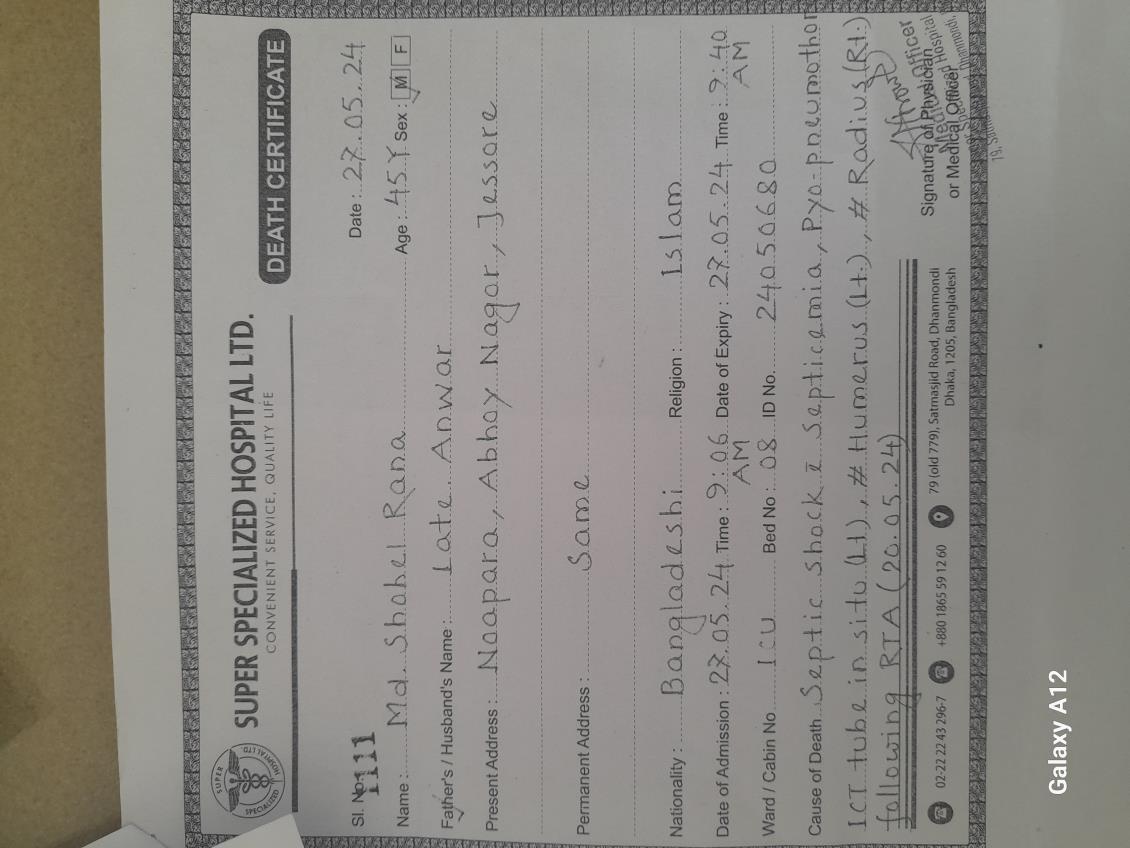 SUPER SPECIALIZED HOSPITAL LTD.
CONVENIENT SERVICE, QUALITY LIFE
DEATH CERTIFICATE
SUPER SPECIALIZED HOSPITAL LTD.
Sl. No. 1111
Date : 27.05.24
Name : Md. Shohel Rana Age : 45Y Sex : M F
Father's / Husband's Name : Late Anwar
Present Address : Noapara, Abhay Nagar, Jessore
Permanent Address : Same
Nationality : Bangladeshi Religion : Islam
Date of Admission : 27.05.24 Time : 9:06 AM Date of Expiry : 27.05.24 Time : 9:40 AM
Ward / Cabin No ICU Bed No : 08 ID No. 24050680
Cause of Death Septic shock c̄ septicemia, Pyo-pneumothor
ICT tube in situ (Lt), # Humerus (Lt.), # Radius (Rt.)
following RTA (20.05.24)
Signature of Physician
or Medical Officer
02-22 22 43 296-7 +880 1865 59 12 60 79 (old 779), Satmasjid Road, Dhanmondi
Dhaka, 1205, Bangladesh
Galaxy A12